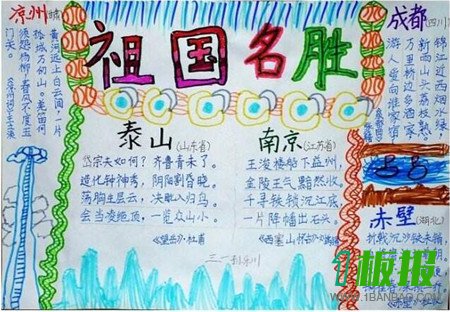 祖国名胜
凉州
黄河远上白云间，一片
孤城万仞山。羌笛何
须怨杨柳，春风不度玉
门关。
泰山(山东省)
岱宗夫如何？齐鲁青未了。
造化钟神秀，阴阳割昏晓。
荡胸生层云，决眦入归鸟。
会当凌绝顶，一览众山小。
《望岳》·杜甫
南京(江苏省)
王濬楼船下益州，
金陵王气黯然收。
千寻铁锁沉江底，
一片降幡出石头。
《西塞山怀古》
成都(四川)
锦江近西烟水绿，
新雨山头荔枝熟。
万里桥边多酒家，
游人爱向谁家宿
赤壁(湖北)
折戟沉沙铁未销，
板报
WWW.1BANBAO.COM